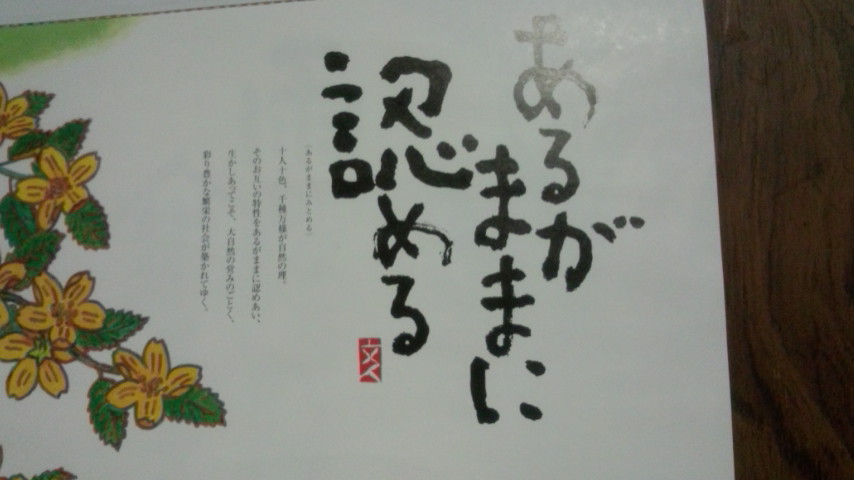 あるが
ままに
認める
(あるがままにみとめる)
十人十色、千種万様が自然の理。
そのお互いの特性をあるがままに認めあい、
生かしあってこそ、大自然の営みのごとく、
彩り豊かな繁栄の社会が築かれてゆく。